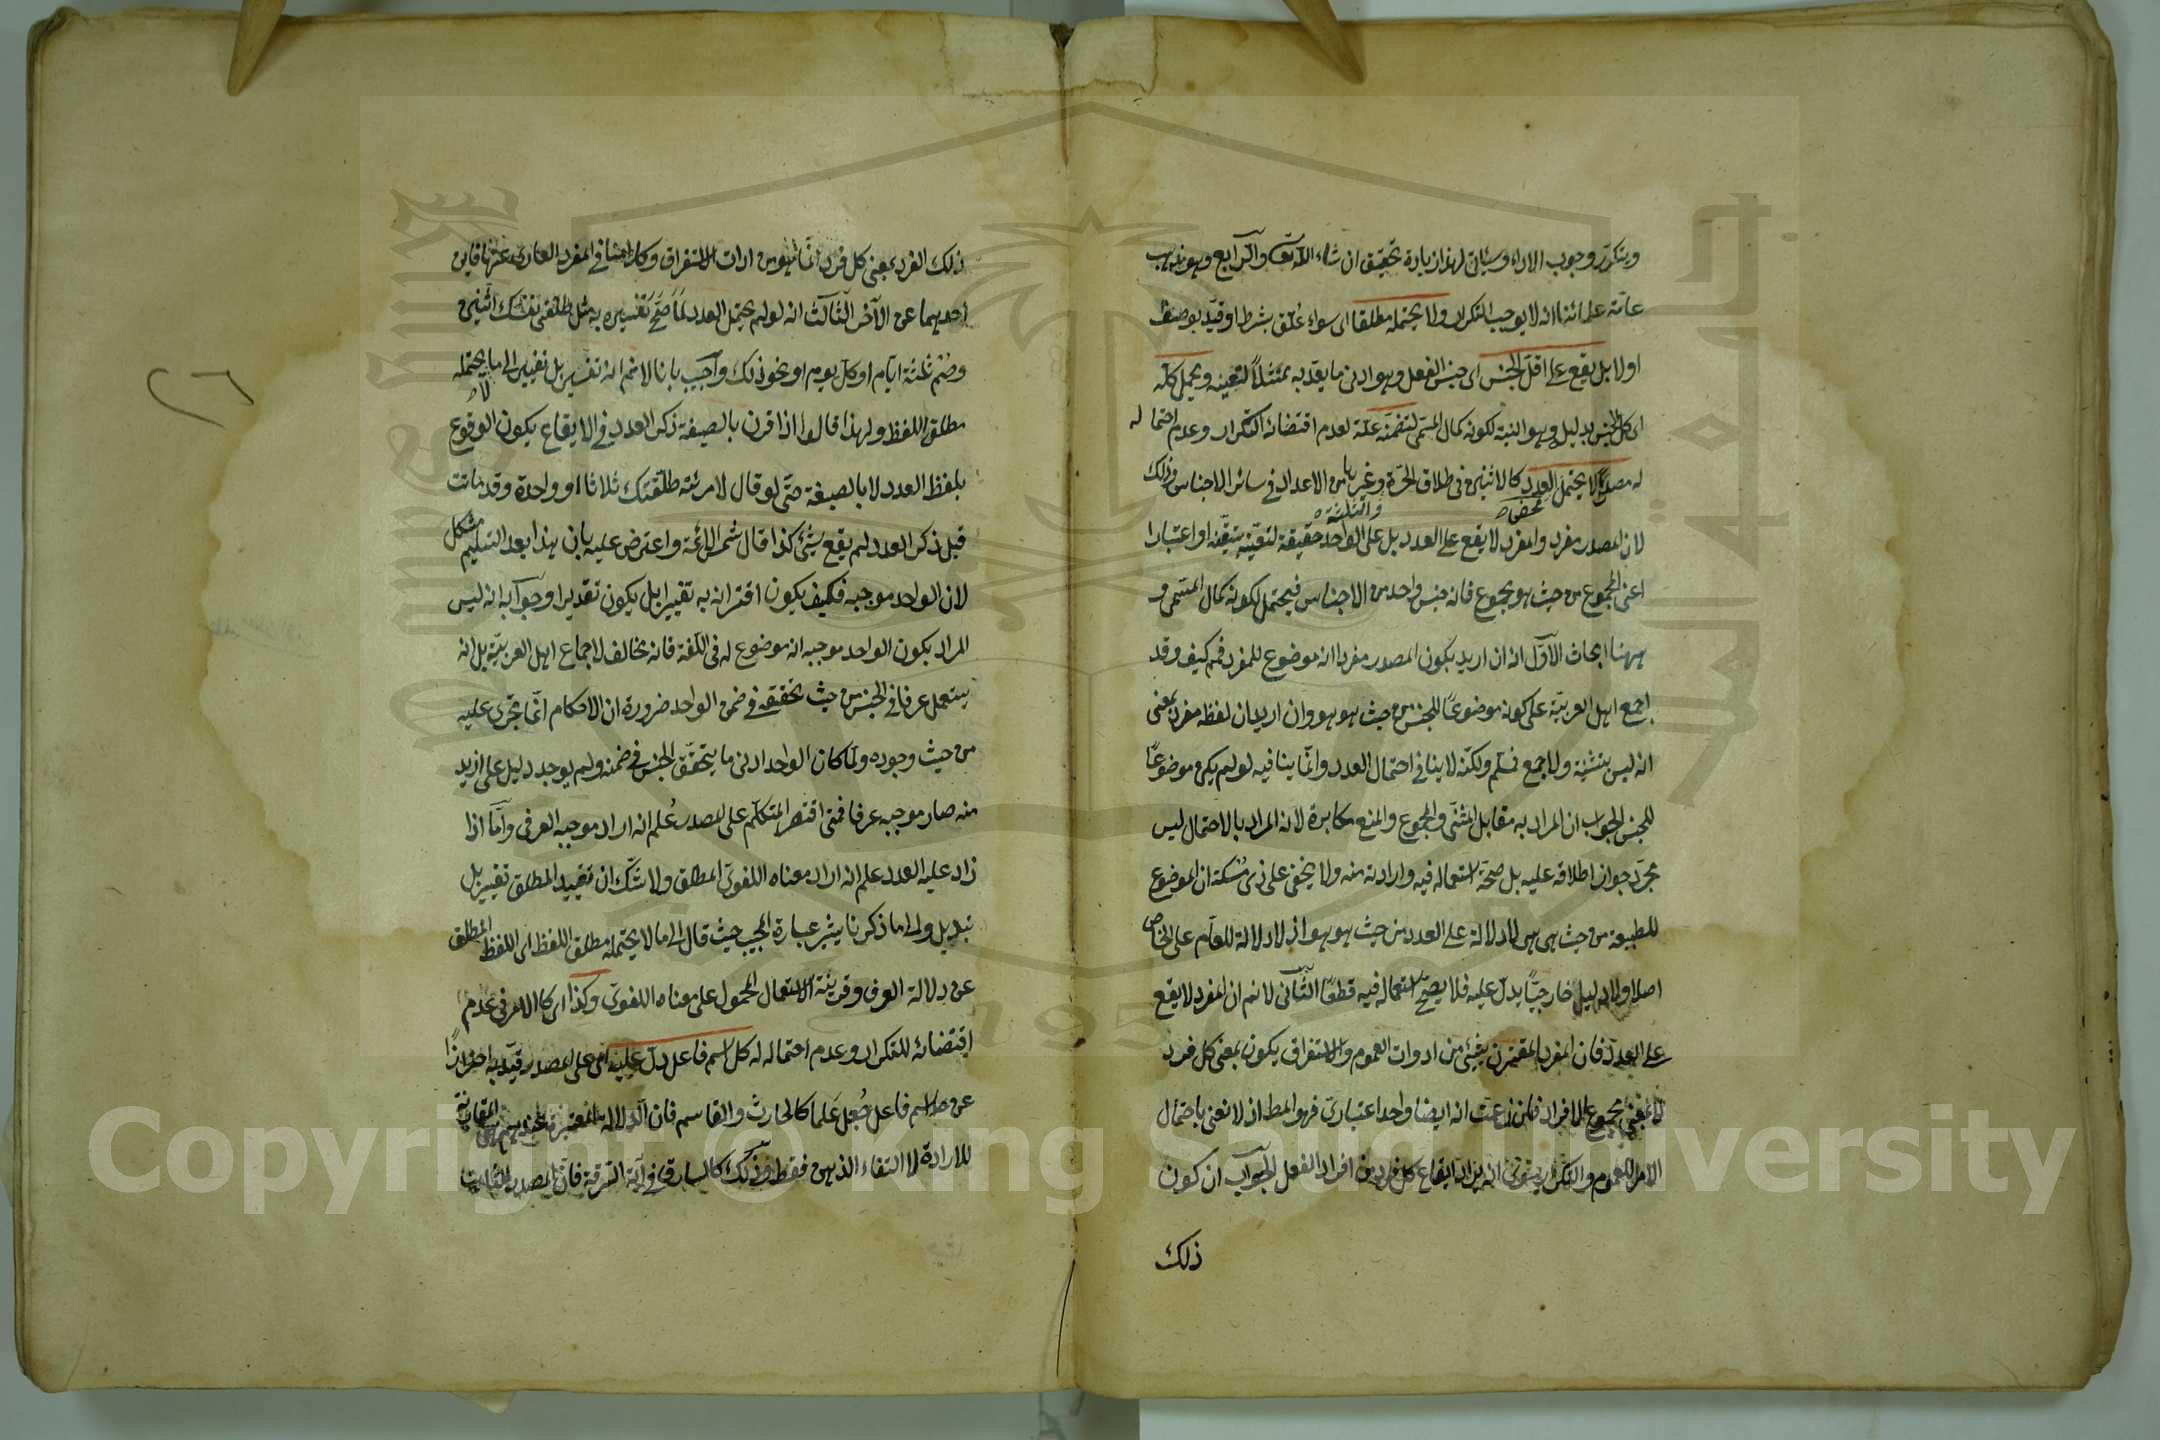 ويتكرر وجوب الاداء وسيأتى لهذا زيادة تحقيق ان شاء الله تعالى والرابع وهو مذهب
عامة علمائنا انه لا يوجب التكرار ولا يحتمله مطلقا اى سواء علق بشرط او قيد بوصف
اولا بل يقع على اقل الجنس اى جنس الفعل وهو ادنى ما يعد به ممتثلا لتعينه ويحمل كله
اى كل الجنس بدليل وهو النية لكونه كمال المسمى لتضمنه علة لعدم اقتضائه التكرار وعدم احتماله
له مصدرا لا يحتمل العدد كالاثنين فى طلاق الحرة وغيرها من الاعداد فى سائر الاجناس وذلك
لان المصدر مفرد والمفرد لا يقع على العدد بل على الواحد حقيقة لتعينه بتيقنه او اعتبارا
محض
والثلثة
اعنى المجموع من حيث هو مجموع فانه جنس واحد من الاجناس فيحتمل لكونه كمال المسمى و
ههنا ابحاث الاول انه ان اريد بكون المصدر مفردا انه موضوع للمفرد فمم كيف وقد
اجمع اهل العربية على كونه موضوعا للجنس من حيث هو هو وان اريد ان لفظه مفرد بمعنى
انه ليس بتثنية ولا جمع فسلم ولكنه لا ينافى احتمال العدد وانما ينافيه لو لم يكن موضوعا
للجنس الجواب ان المراد به مقابل المثنى والمجموع والمنع مكابرة لانه المراد بالاحتمال ليس
مجرد جواز اطلاقه عليه بل صحة استعماله فيه وارادته منه ولا يخفى على ذى مسكة ان الموضوع
للطبيعة من حيث هى هى لا دلالة على العدد من حيث هو هو اذ لا دلالة للعام على الخاص
اصلا ولا دليل خارجيا يدل عليه فلا يصح استعماله فيه قطعا الثانى لا نم ان المفرد لا يقع
على العدد فان المفرد المقترن بشئ من ادوات العموم والاستغراق يكون بمعنى كل فرد
لا بمعنى مجموع الافراد فان زعمت انه ايضا واحد اعتبارى فهو المط اذ لا نعنى باحتمال
الامر للعموم والتكرار سوى انه يراد ايقاع كل فرد من افراد الفعل الجواب ان كون
ذلك
٢٦
ذلك الفرد بمعنى كل فرد انما هو من ادات الاستغراق وكلامنا فى المفرد العارى عنها فاين
احدهما عن الآخر الثالث انه لو لم يحتمل العدد لما صح تفسيره به مثل طلقى نفسك اثنين
وصم ثلثة ايام او كل يوم او نحو ذلك واجيب بانا لا نم انه تفسير بل تغيير الى ما لا يحتمله
مطلق اللفظ ولهذا قالوا اذا قرن بالصيغة ذكر العدد فى الايقاع يكون الوقوع
بلفظ العدد لا بالصيغة حتى لو قال لامرئته طلقتك ثلاثا او واحدة وقد ماتت
قبل ذكر العدد لم يقع شئ كذا قال شمس الائمة واعترض عليه بان هذا بعد التسليم مشكل
لان الواحد موجبه فكيف يكون اقترانه به تغييرا بل يكون تقديرا وجوابه انه ليس
المراد بكون الواحد موجبه انه موضوع له فى اللغة فانه مخالف لاجماع اهل العربية بل انه
يستعمل عرفا فى الجنس من حيث تحققه فى ضمن الواحد ضرورة ان الاحكام انما تجرى عليه
من حيث وجوده ولما كان الواحد ادنى ما يتحقق الجنس فى ضمنه ولم يوجد دليل على ازيد
منه صار موجبه عرفا فمتى اقتصر المتكلم على المصدر علم انه اراد موجبه العرفى واما اذا
زاد عليه العدد علم انه اراد معناه اللغوى المطلق ولا شك ان تقييد المطلق تغيير بل
تبديل والى ما ذكرنا يشير عبارة المجيب حيث قال الى ما لا يحتمله مطلق اللفظ اى اللفظ المطلق
عن دلالة العرف وقرينة الاستعمال المحمول على معناه اللغوى وكذا اى كالامر فى عدم
اقتضائه للتكرار وعدم احتماله له كل اسم فاعل دل عليه اى على المصدر قيد به احترازا
عن اسم فاعل جعل علما كالحارث والقاسم فان الدلالة المعتبرة عندهم هى المقارنة
للارادة لا التفاء الذهن فقط وذلك كالسارق فى آية السرقة فان المصدر الثابت